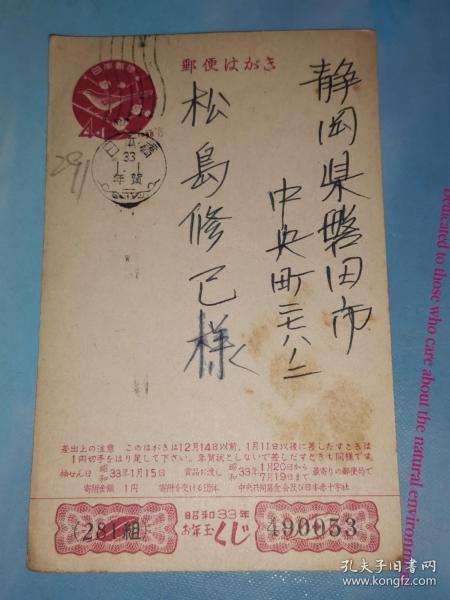 郵便はがき
日本郵便
静岡県磐田市
中央町二六八ノ二
松島修己様
33
1.1
年賀
291
差出上の注意 このはがきは12月14日以前、1月11日以後に差しだすときは
1円切手をはり足して下さい。年賀状としないで差しだすときも同様です。
抽せん日 昭和33年1月15日 賞品お渡し 昭和1月20日から7月19日まで 最寄りの郵便局で
寄附金額 1円 寄附を受ける団体 中央共同募金会及び日本赤十字社
(281組)
昭和33年
お年玉くじ
490053
Dedicated to those who care about the natural environment
孔夫子旧书网
www.kongfz.com